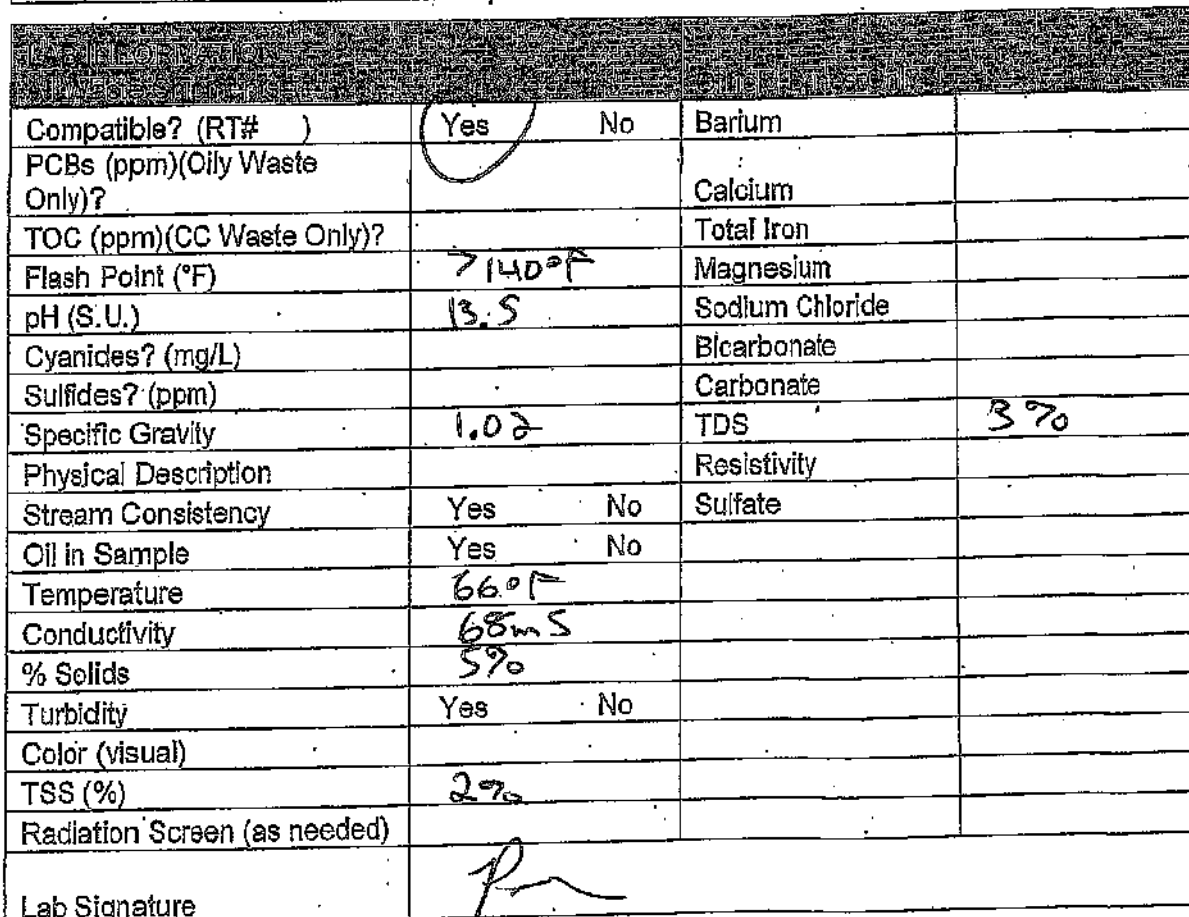 LAB INFORMATION
Compatible? (RT# ) Yes No Barium
PCBs (ppm)(Oily Waste
Only)? Calcium
TOC (ppm)(CC Waste Only)? Total Iron
Flash Point (°F) >140°F Magnesium
pH (S.U.) 13.5 Sodium Chloride
Cyanides? (mg/L) Bicarbonate
Sulfides? (ppm) Carbonate
Specific Gravity 1.02 TDS 3%
Physical Description Resistivity
Stream Consistency Yes No Sulfate
Oil in Sample Yes No
Temperature 66°F
Conductivity 68mS
% Solids 5%
Turbidity Yes No
Color (visual)
TSS (%) 2%
Radiation Screen (as needed)
Lab Signature